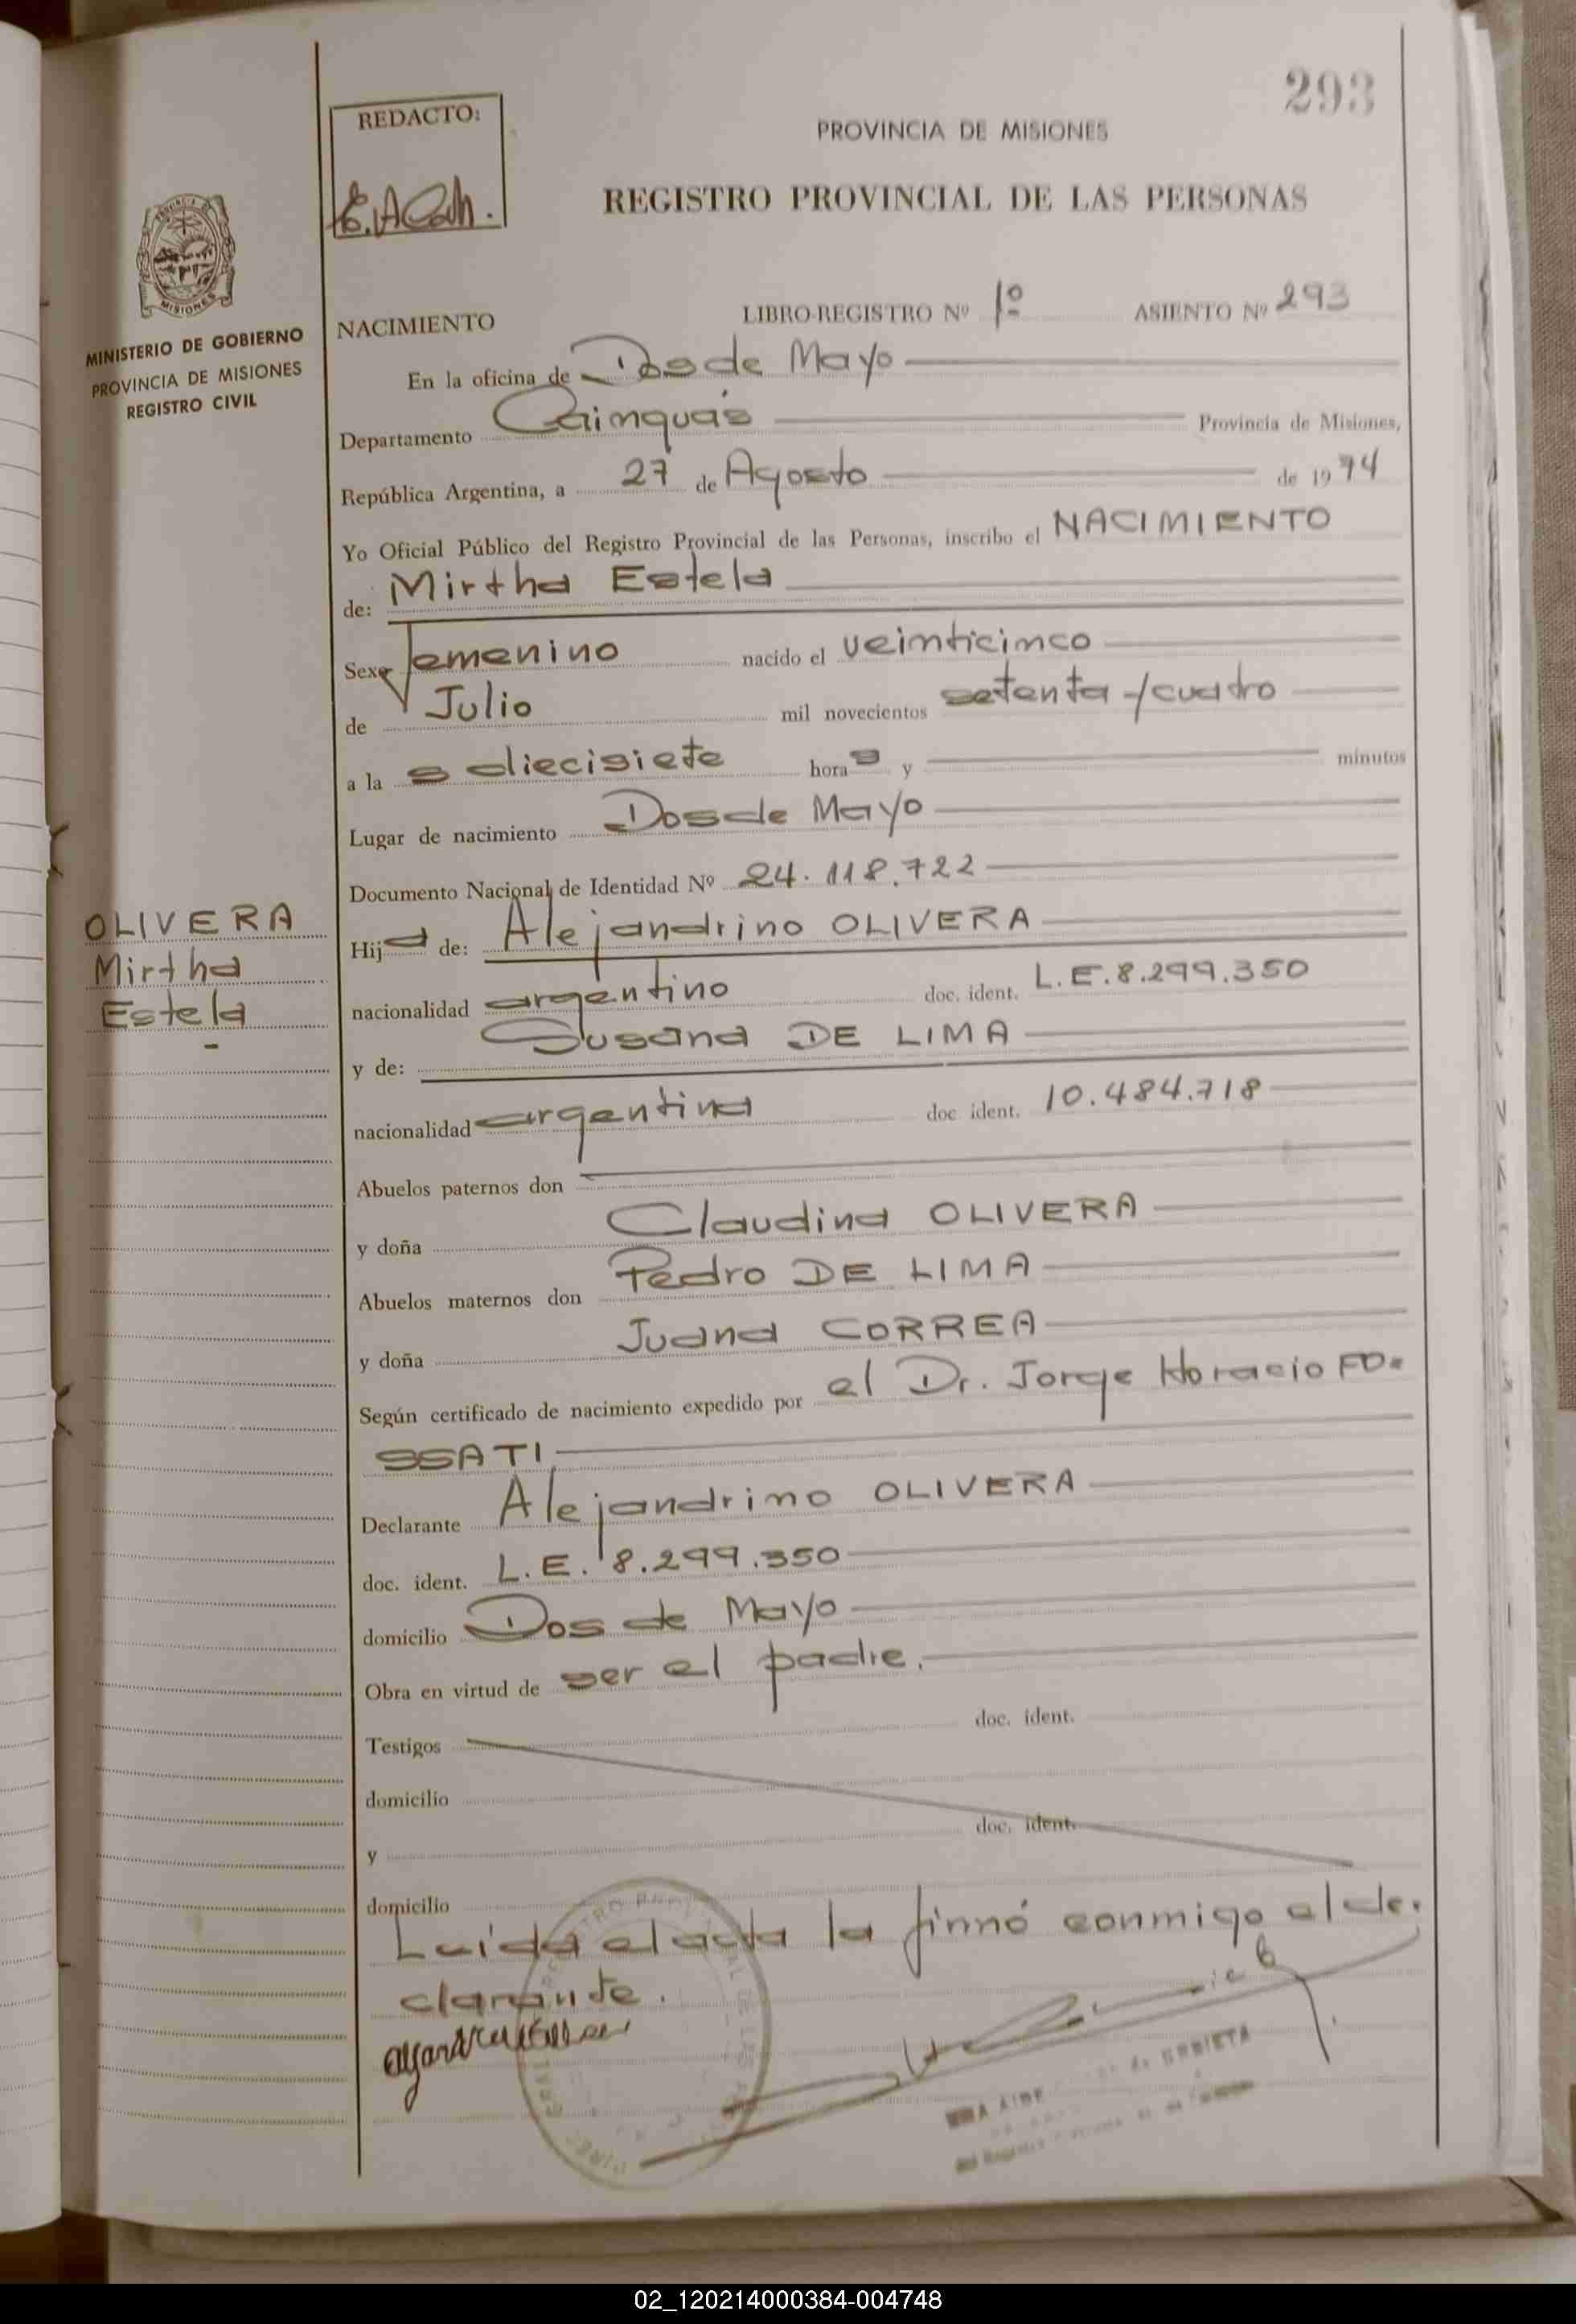 293
REDACTO:
PROVINCIA DE MISIONES
REGISTRO PROVINCIAL DE LAS PERSONAS
MISIONES
MINISTERIO DE GOBIERNO
PROVINCIA DE MISIONES
REGISTRO CIVIL
NACIMIENTO LIBRO-REGISTRO Nº 1º ASIENTO Nº 293
En la oficina de Dos de Mayo
Departamento Cainguás Provincia de Misiones,
República Argentina, a 27 de Agosto de 1974
Yo Oficial Público del Registro Provincial de las Personas, inscribo el NACIMIENTO
de: Mirtha Estela
Sexo femenino nacido el veinticinco
de Julio mil novecientos setenta y cuatro
a la s diecisiete horas y minutos
Lugar de nacimiento Dos de Mayo
Documento Nacional de Identidad Nº 24.118.722
OLIVERA
Mirtha
Estela
Hija de: Alejandrino OLIVERA
nacionalidad argentino doc. ident. L.E.8.299.350
y de: Susana DE LIMA
nacionalidad argentina doc ident. 10.484.718
Abuelos paternos don
y doña Claudina OLIVERA
Abuelos maternos don Pedro DE LIMA
y doña Juana CORREA
Según certificado de nacimiento expedido por el Dr. Jorge Horacio FO=
SSATI
Declarante Alejandrino OLIVERA
doc. ident. L.E. 8.299.350
domicilio Dos de Mayo
Obra en virtud de ser el padre.
doc. ident.
Testigos
domicilio
doc. ident.
y
domicilio
Leída el acta la firmó conmigo el de-
clarante.
02_120214000384-004748